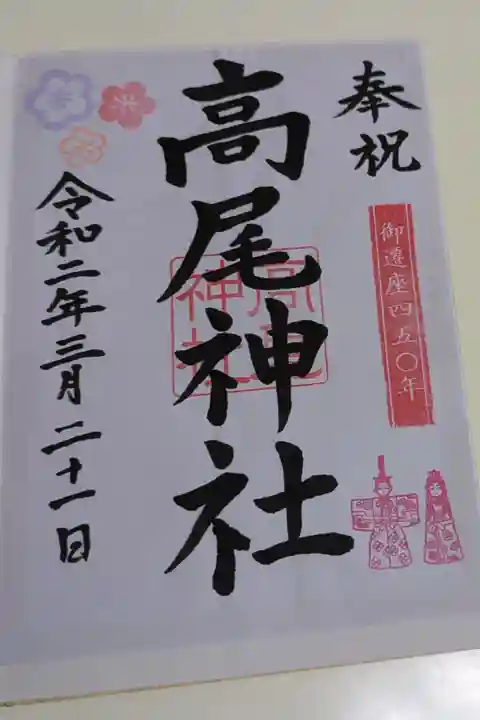 奉祝
御遷座四五〇年
高尾神社
高尾神社
令和二年三月二十一日